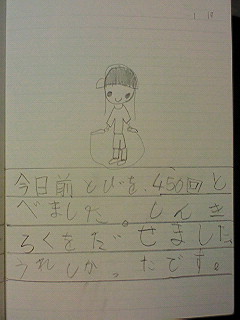 今日前とびを、450回と
べました。しんき
ろくをだせました。
うれしかったです。